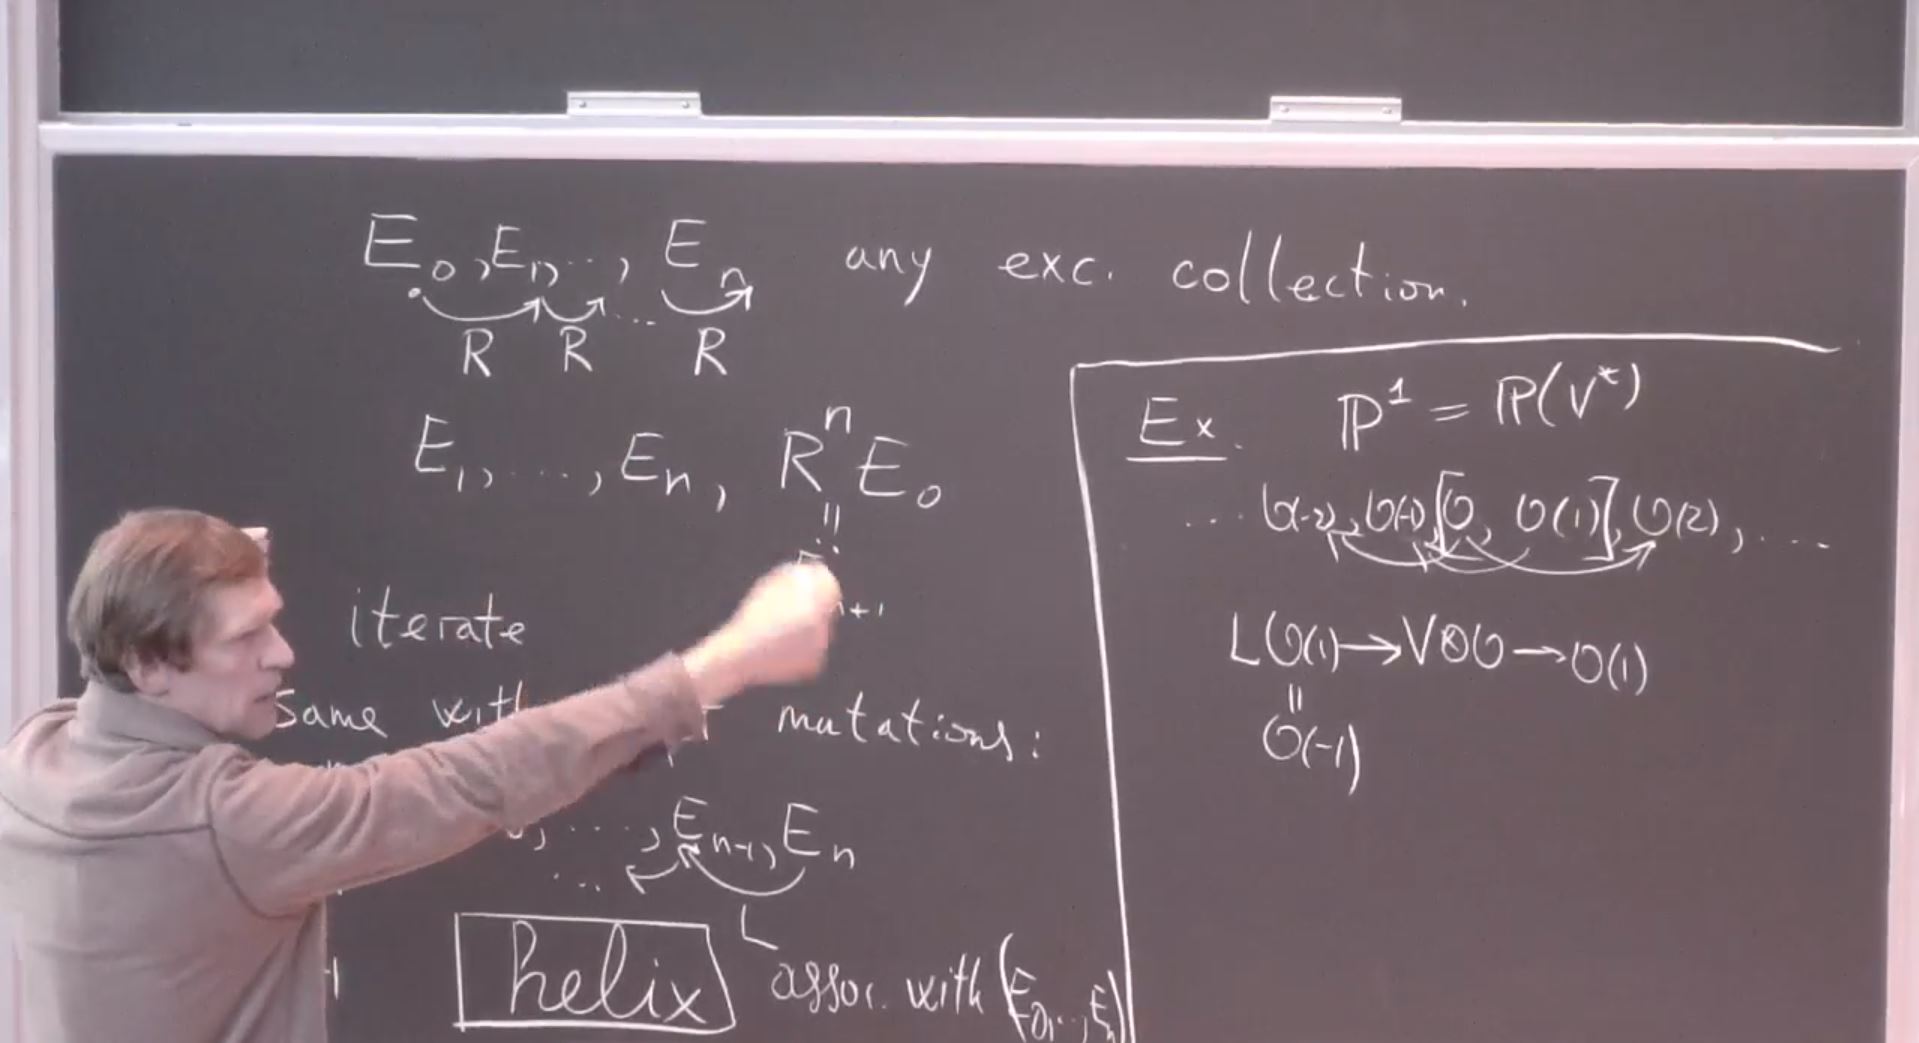 E₀, E₁, ..., Eₙ any exc. collection.
R R ... R
E₁, ..., Eₙ, RⁿE₀
||
n+1
iterate
Same with mutations:
..., Eₙ₋₁, Eₙ
...
L
helix assoc. with (E₀, .., Eₙ)
Ex. ℙ¹ = ℙ(V*)
... O(-2), O(-1), [O, O(1)], O(2), ....
LO(1) → V⊗O → O(1)
||
O(-1)